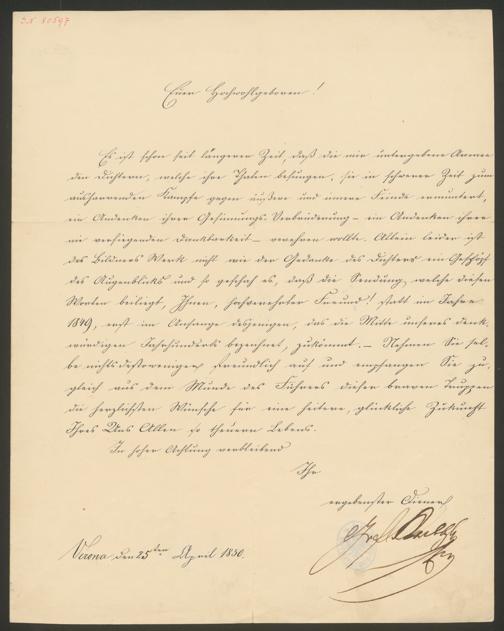 I.N. 80597
Euer Hochwohlgeboren!
Es ist schon seit längerer Zeit, daß die mir untergebene Armee
den Dichtern, welche ihre Thaten besungen, sie in schwerer Zeit zum
ausharrenden Kampfe gegen äußere und innere Feinde ermuntert,
ein Andenken ihrer Gesinnungs-Verbrüderung – ein Andenken ihrer
nie versiegenden Dankbarkeit – verehren wollte. Allein leider ist
des Bildners Werk nicht wie der Gedanke des Dichters ein Geschöpf
des Augenblicks und so geschah es, daß die Sendung, welche diesen
Worten beiliegt, Ihnen, hochverehrter Freund! statt im Jahre
1849, erst im Anfange desjenigen, das die Mitte unseres denk-
würdigen Jahrhunderts bezeichnet, zukömmt. – Nehmen Sie sel-
be nichts destoweniger freundlich auf und empfangen Sie zu-
gleich aus dem Munde des Führers dieser braven Truppen
die herzlichsten Wünsche für eine heitere, glückliche Zukunft
Ihres Uns Allen so theuern Lebens.
In hoher Achtung verbleibend
Ihr
ergebenster Diener
Verona, den 25ten April 1850.